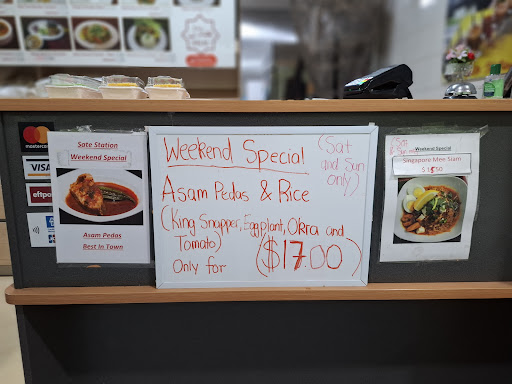 mastercard
VISA
eftpos
Sate Station
Weekend Special
Asam Pedas
Best In Town
Weekend Special
(Sat
and Sun
only)
Asam Pedas & Rice
(King Snapper, Eggplant, Okra and
Tomato)
Only for
($17.00)
Weekend Special
Singapore Mee Siam